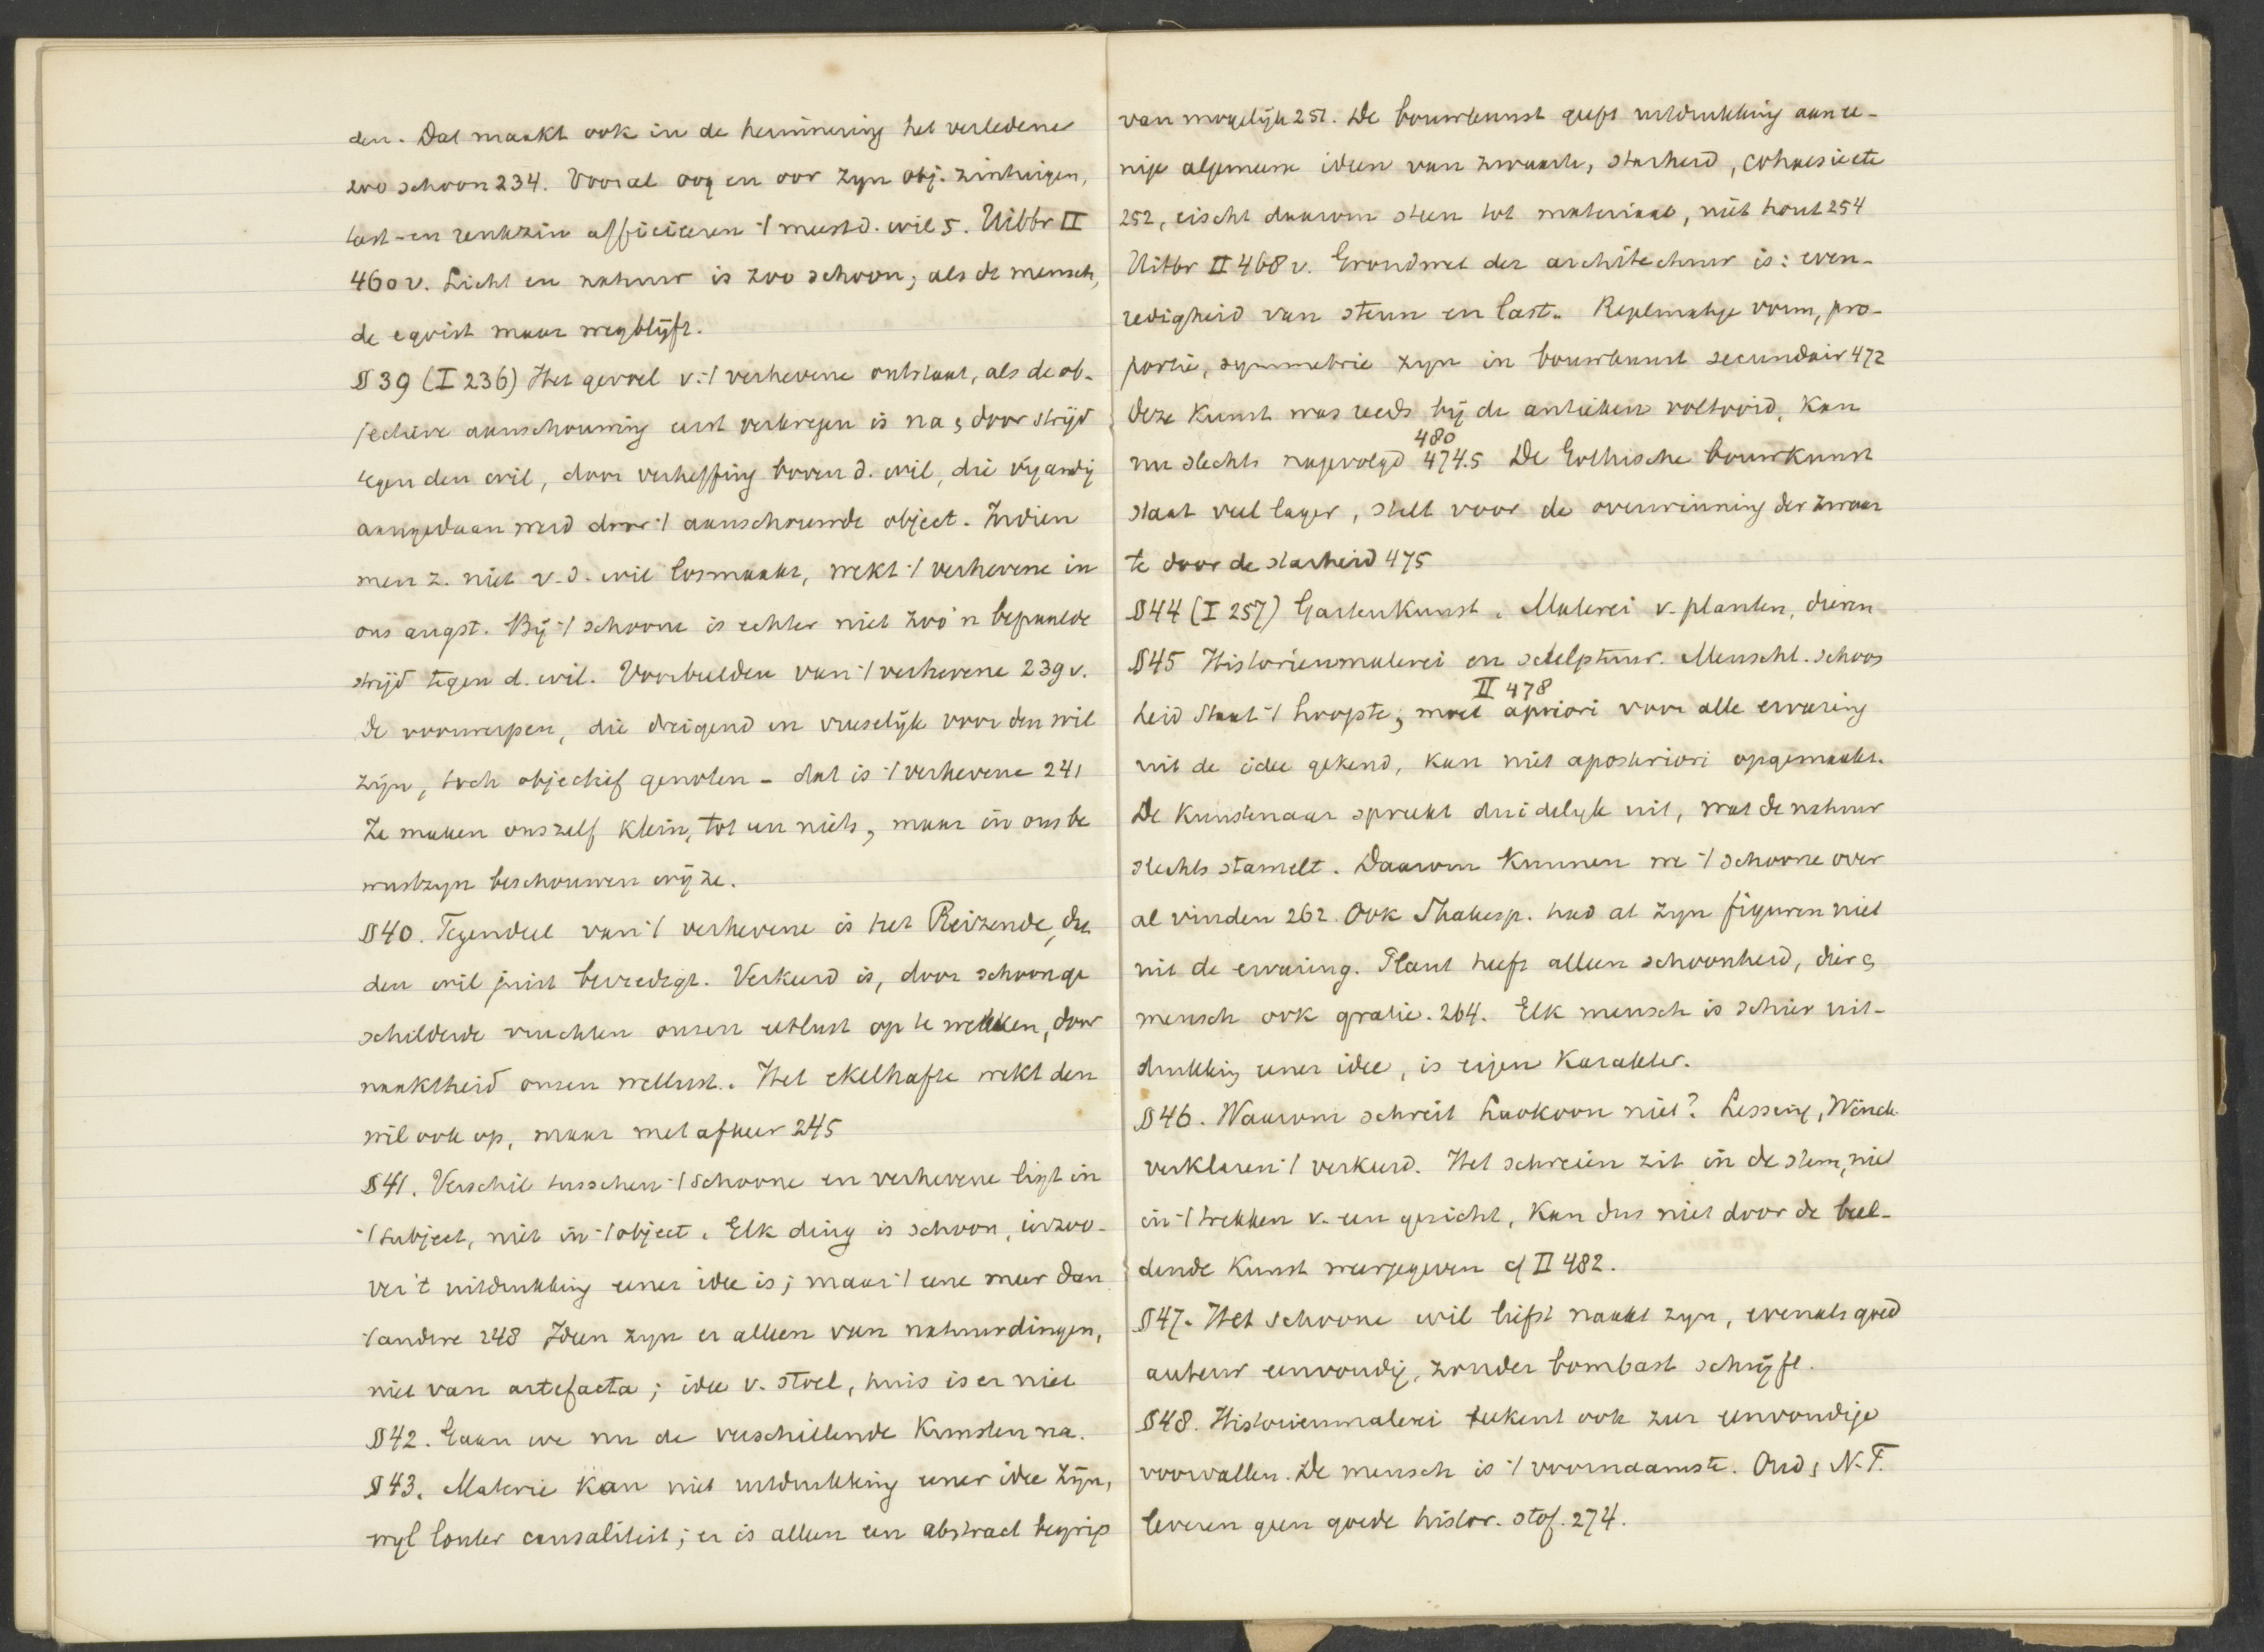 den. Dat maakt ook in de herinnering het verledene
zoo schoon 234. Vooral oog en oor zyn obj. zintuigen,
tast- en reukzin afficieeren 't meest d. wil 5. Uitbr II
460 v. Licht en natuur is zoo schoon, als de mensch,
de egoist maar wegblijft.
§ 39 (I 236) Het gevoel v. 't verhevene ontstaat, als de ob-
jectieve aanschouwing eerst verkregen is na & door strijd
tegen den wil, door verheffing boven d. wil, die vyandig
aangedaan werd door 't aanschouwde object. Indien
men z. niet v. d. wil losmaakt, wekt 't verhevene in
ons angst. Bij 't schoone is echter niet zoo'n bepaalde
strijd tegen d. wil. Voorbeelden van 't verhevene 239 v.
de voorwerpen, die dreigend en vreeselijk voor den wil
zijn, toch objectief genoten - dat is 't verhevene 241
Ze maken onszelf klein, tot een niets, maar in ons be
wustzyn beschouwen wij ze.
§ 40. Tegendeel van 't verhevene is het Reizende, die
den wil juist bevredigt. Verkeerd is, door schoon ge
schilderde vruchten onzen eetlust op te wekken, door
naaktheid onzen wellust. Het ekelhafte wekt den
wil ook op, maar met afkeer 245
§ 41. Verschil tusschen 't schoone en verhevene ligt in
't subject, niet in 't object. Elk ding is schoon, inzoo-
ver 't uitdrukking eener idee is; maar 't eene meer dan
't andere 248 Ideen zyn er alleen van natuurdingen,
niet van artefacta; idee v. stoel, huis is er niet
§ 42. Gaan we nu de verschillende Kunsten na.
§ 43. Materie kan niet uitdrukking eener idee zijn,
wyl louter causaliteit; er is alleen een abstract begrip
van mogelijk 251. De bouwkunst geeft uitdrukking aan ee-
nige algemeene ideen van zwaarte, starheid, cohaesie etc
252, eischt daarom steen tot materiaal, niet hout 254
Uitbr II 468 v. Grondwet der architectuur is: even-
redigheid van steun en last. Regelmatige vorm, pro-
portie, symmetrie zyn in bouwkunst secundair 472
Deze Kunst was reeds bij de antieken voltooid, Kan
480
nu slechts nagevolgd 474.5 De Gothische bouwkunst
staat veel lager, stelt voor de overwinning der zwaar
te door de starheid 475
§ 44 (I 257) Gartenkunst. Malerei v. planten, dieren
§ 45 Historienmalerei en sculptuur. Menschl. schoon
II 478
heid staat 't hoogste, moet apriori voor alle ervaring
uit de idee gekend, kan niet aposteriori opgemaakt.
De Kunstenaar spreekt duidelyk uit, wat de natuur
slechts stamelt. Daarom kunnen we 't schoone over
al vinden 262. Ook Shakesp. had al zyn figuren niet
uit de ervaring. Plant heeft alleen schoonheid, dier &
mensch ook gratie. 264. Elk mensch is schier uit-
drukking eener idee, is eigen Karakter.
§ 46. Waarom schreit Laokoon niet? Lessing, Winck
verklaren 't verkeerd. Het schreien zit in de stem, niet
in 't trekken v. een gezicht, kan dus niet door de beel-
dende Kunst weergegeven cf II 482.
§ 47. Het schoone wil liefst naakt zyn, evenals goed
auteur eenvoudig, zonder bombast schrijft.
§ 48. Historienmalerei teekent ook zeer eenvoudige
voorvallen. De mensch is 't voornaamste. Oud & N.T.
leveren geen goede histor. stof. 274.